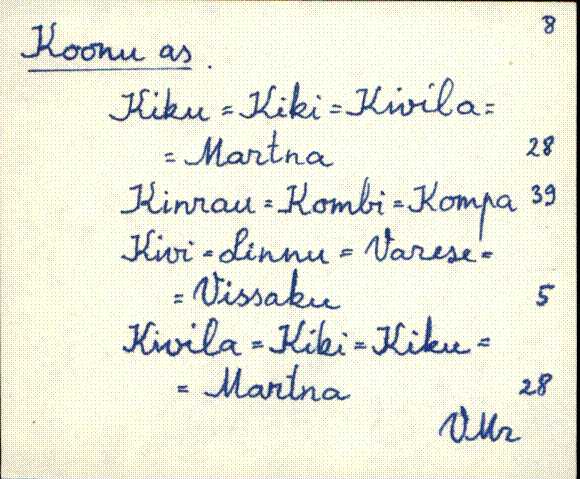 8
Koonu as.
Kiku = Kiki = Kivila =
= Martna 28
Kinrau = Kombi = Kompa 39
Kivi = Linnu = Varese =
= Vissaku 5
Kivila = Kiki = Kiku =
= Martna 28
VMr